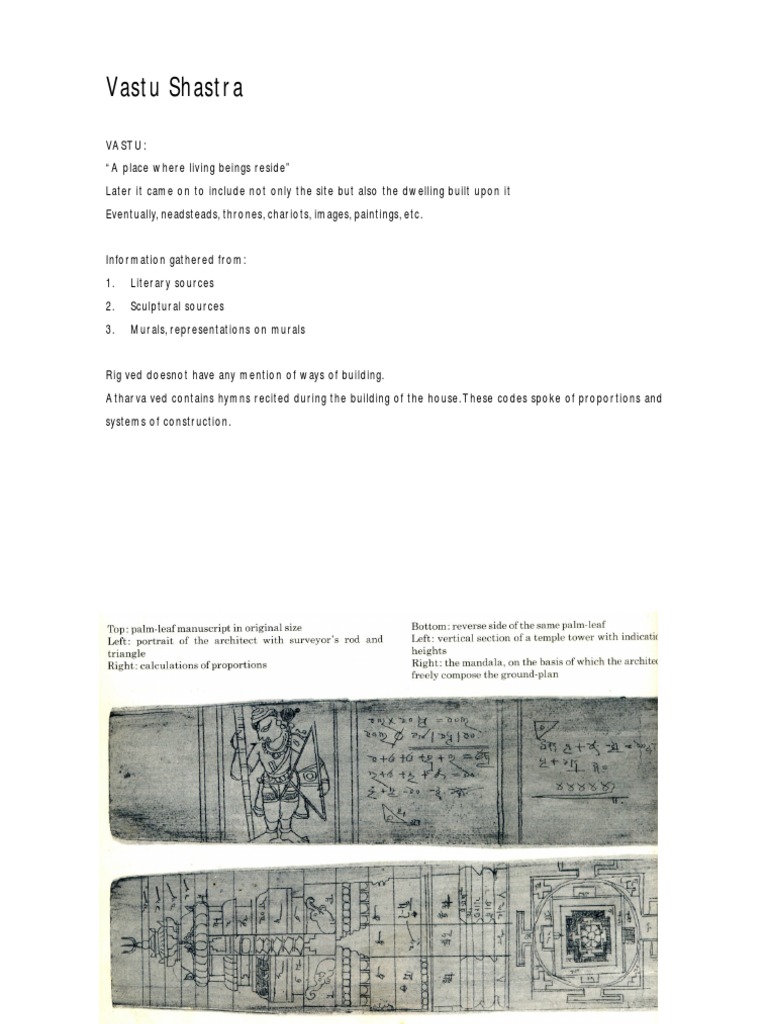 Vastu Shastra
VASTU:
“A place where living beings reside”
Later it came on to include not only the site but also the dwelling built upon it
Eventually, neadsteads, thrones, chariots, images, paintings, etc.
Information gathered from:
1. Literary sources
2. Sculptural sources
3. Murals, representations on murals
Rig ved doesnot have any mention of ways of building.
Atharva ved contains hymns recited during the building of the house. These codes spoke of proportions and
systems of construction.
Top: palm-leaf manuscript in original size
Left: portrait of the architect with surveyor's rod and
triangle
Right: calculations of proportions
Bottom: reverse side of the same palm-leaf
Left: vertical section of a temple tower with indicatic
heights
Right: the mandala, on the basis of which the archite
freely compose the ground-plan